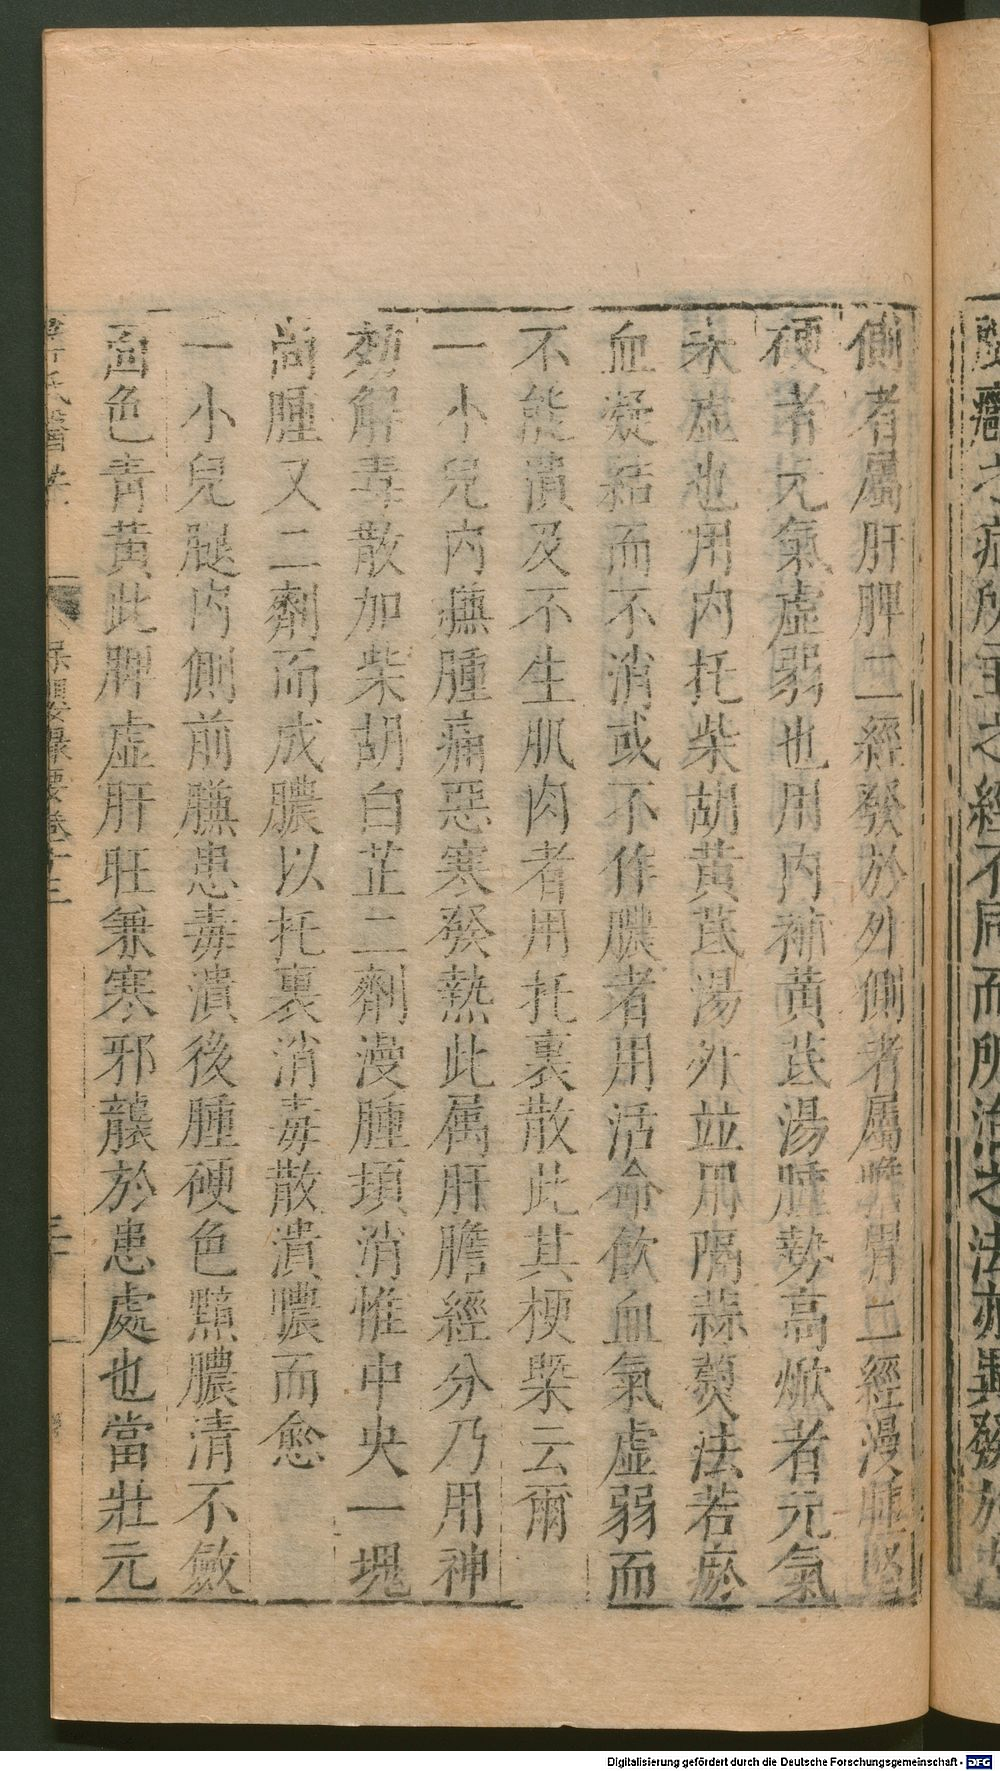 側者屬肝脾二經發於外側者屬膽胃二經漫腫堅
硬者元氣虛弱也用內補黃芪湯腫勢高焮者元氣
未虛也用內托柴胡黃芪湯外並用隔蒜灸法若瘀
血凝結而不消或不作膿者用活命飲血氣虛弱而
不能潰及不生肌肉者用托裏散此其梗槩云爾
一小兒內臁腫痛惡寒發熱此属肝膽經分乃用神
効解毒散加柴胡白芷二劑漫腫頓消惟中央一塊
尚腫又二劑而成膿以托裏消毒散潰膿而愈
一小兒腿內側前臁患毒潰後腫硬色黯膿清不斂
面色青黃此脾虛肝旺兼寒邪襲於患處也當壯元
之病所主之經不同而所治之法亦異發於
Digitalisierung gefördert durch die Deutsche Forschungsgemeinschaft - DFG